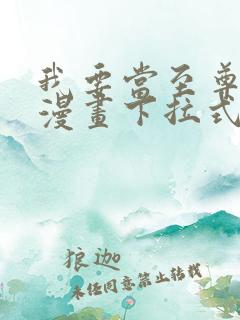 我要當至尊
漫畫下拉式
狼迦
未经同意禁止转载